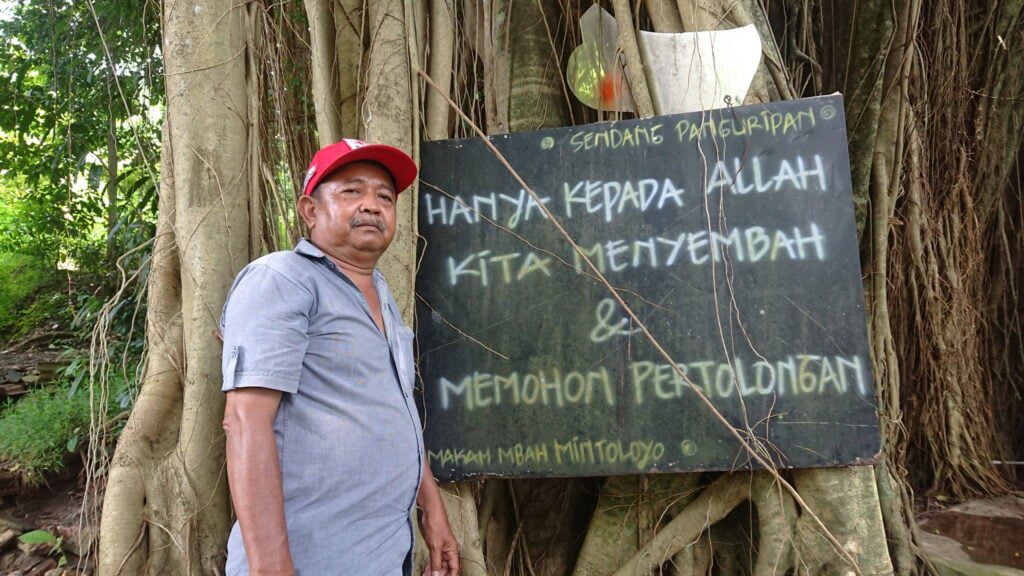 SENDANG PANGURIPAN
HANYA KEPADA ALLAH
KITA MENYEMBAH
&
MEMOHON PERTOLONGAN
MAKAH MBAH MINTOLOYO